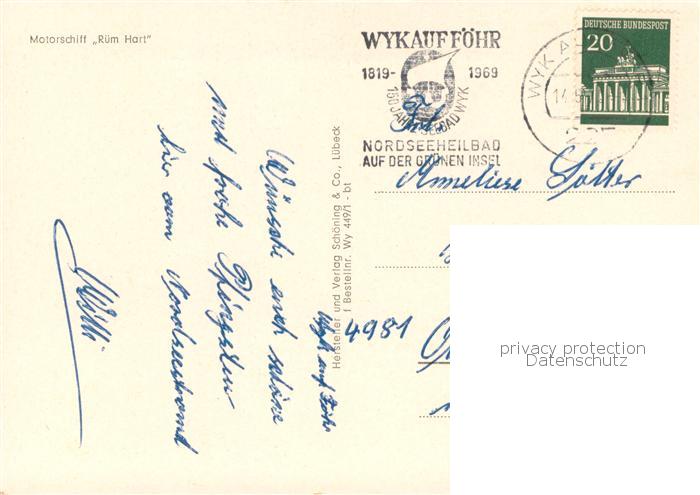 Motorschiff „Rüm Hart"
WYK AUF FÖHR
1819- 1969
150 JAHRE SEEBAD WYK
NORDSEEHEILBAD
AUF DER GRÜNEN INSEL
WYK A
14
DEUTSCHE BUNDESPOST
20
Frl.
Anneliese Götter
4981
Wyk auf Föhr
Wünsche euch schöne
und frohe Pfingsten
hier vom Nordseestrand
Willi
Hersteller und Verlag Schöning & Co., Lübeck
f Bestellnr. Wy 449/1 - bt
privacy protection
Datenschutz